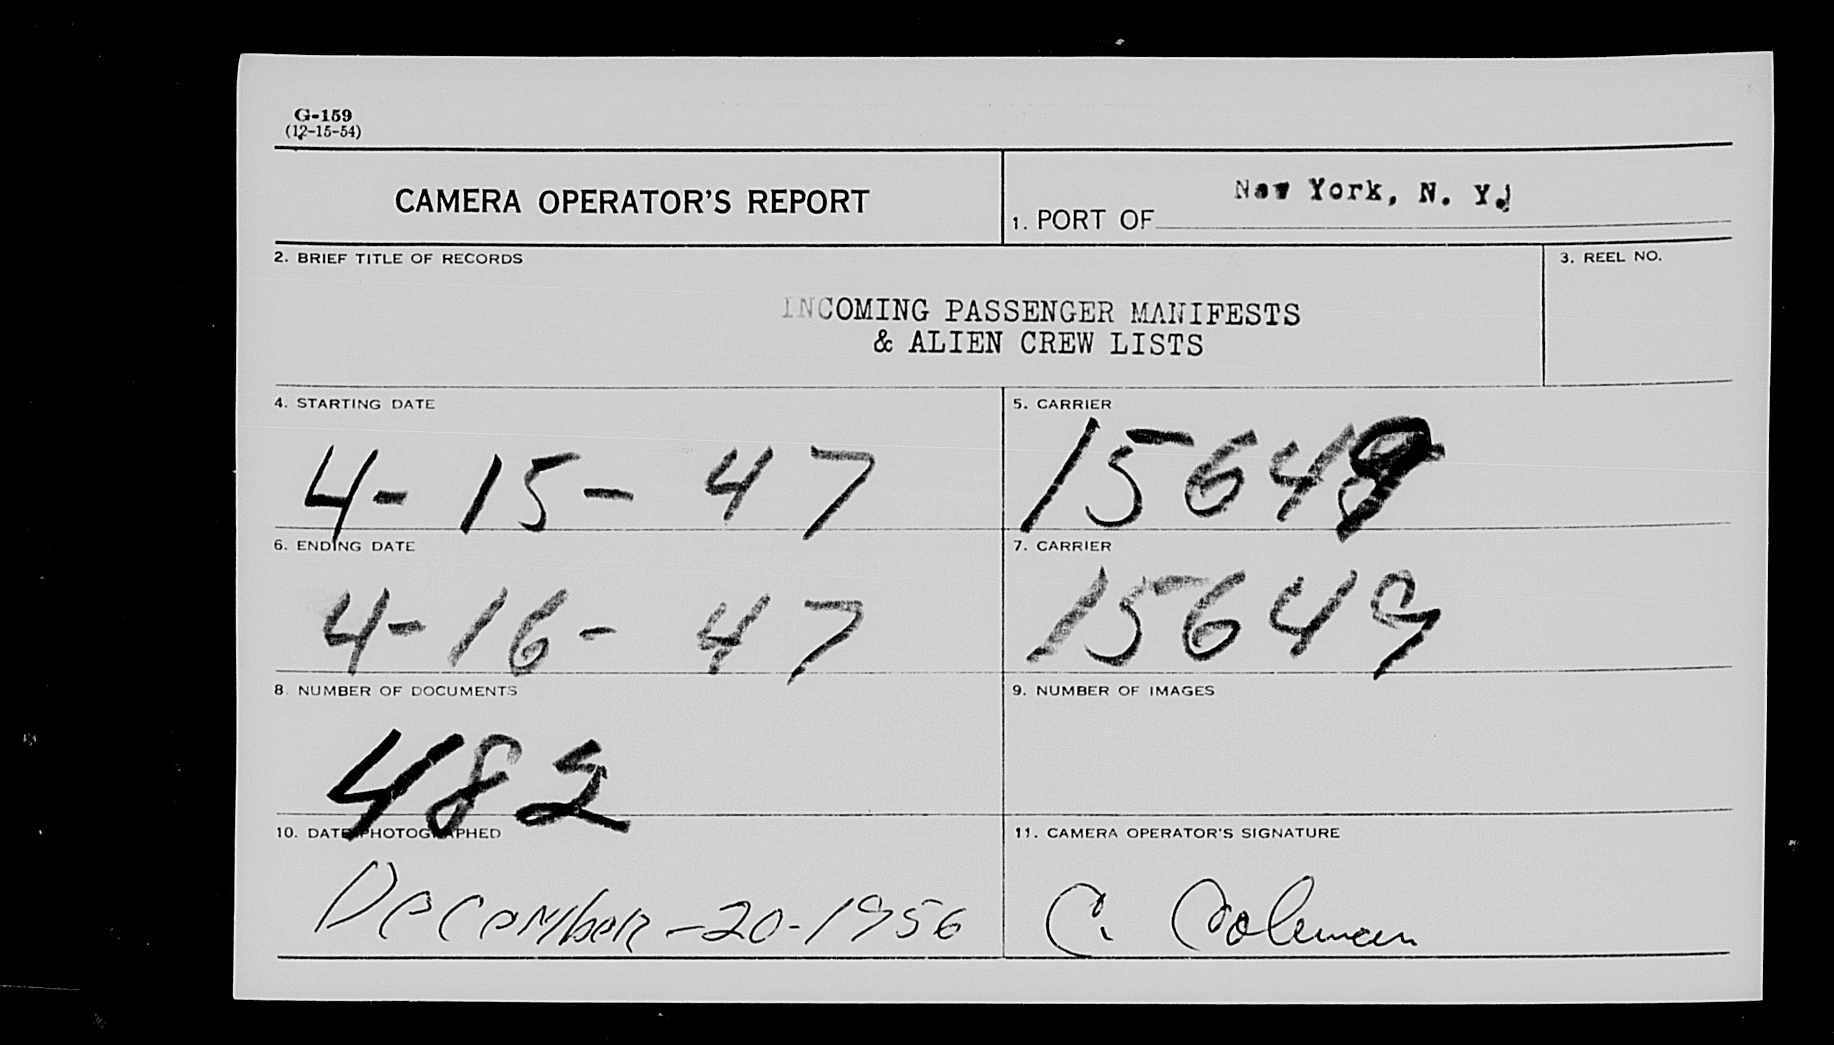 G-159
(12-15-54)
CAMERA OPERATOR'S REPORT
1. PORT OF New York, N. Y.
2. BRIEF TITLE OF RECORDS
INCOMING PASSENGER MANIFESTS
& ALIEN CREW LISTS
3. REEL NO.
4. STARTING DATE
4-15-47
5. CARRIER
6. ENDING DATE
4-16-47
7. CARRIER
15649
8. NUMBER OF DOCUMENTS
482
9. NUMBER OF IMAGES
10. DATE PHOTOGRAPHED
December-20-1956
11. CAMERA OPERATOR'S SIGNATURE
C. Coleman